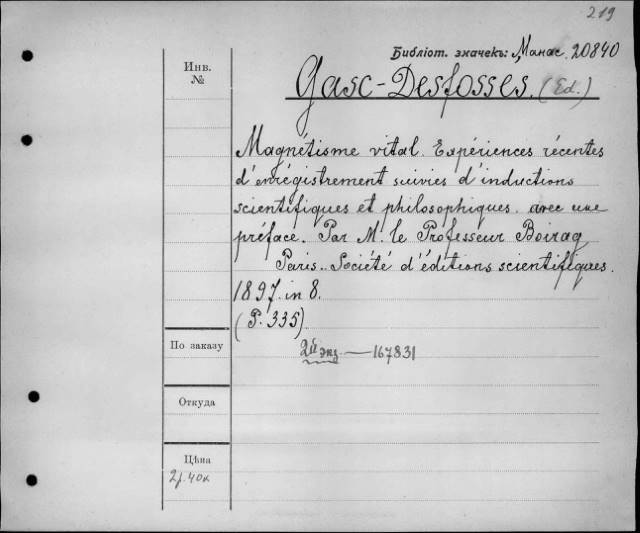 219
Библіот. значекъ: Манас. 20840
Инв.
№
Gasc-Desfosses. (Ed.)
Magnétisme vital. Expériences récentes
d'enrégistrement suivies d'inductions
scientifiques et philosophiques. avec une
préface. Par M. le Professeur Boiraq
Paris. Société d'éditions scientifiques.
1897. in 8.
(P. 335)
По заказу
2й экз — 167831
Откуда
Цѣна
2р. 40к